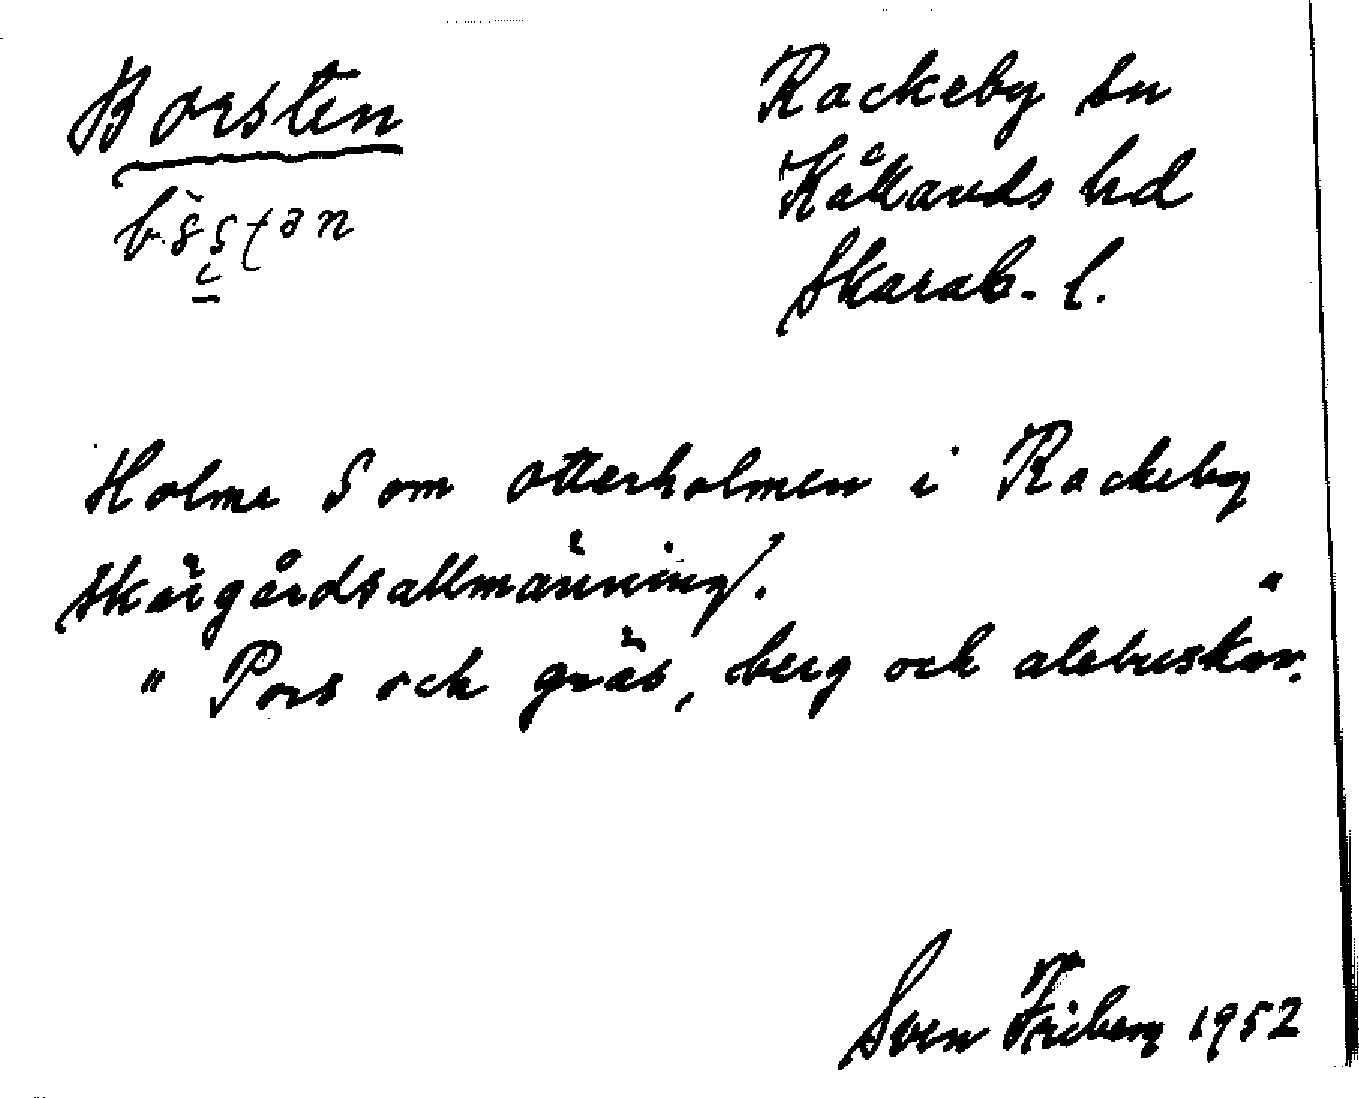 Borsten
Rackeby sn
Kållands hd
Skarab. l.
Holme S om Otterholmen i Rackeby
skärgårdsallmänning.
" Pors och gräs, berg och alebuskar. "
Sven Friberg 1952